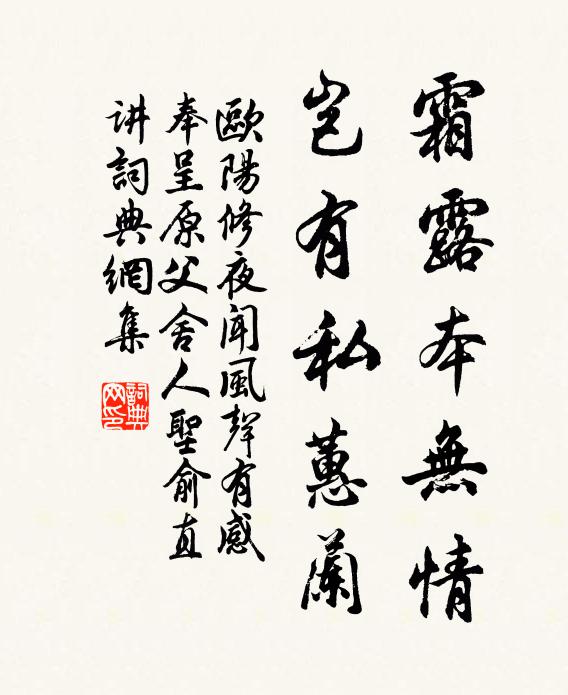 霜露本無情
豈有私蕙蘭
歐陽修夜聞風聲有感
奉呈原父舍人聖俞直
讲詞典網集
詞典
网印